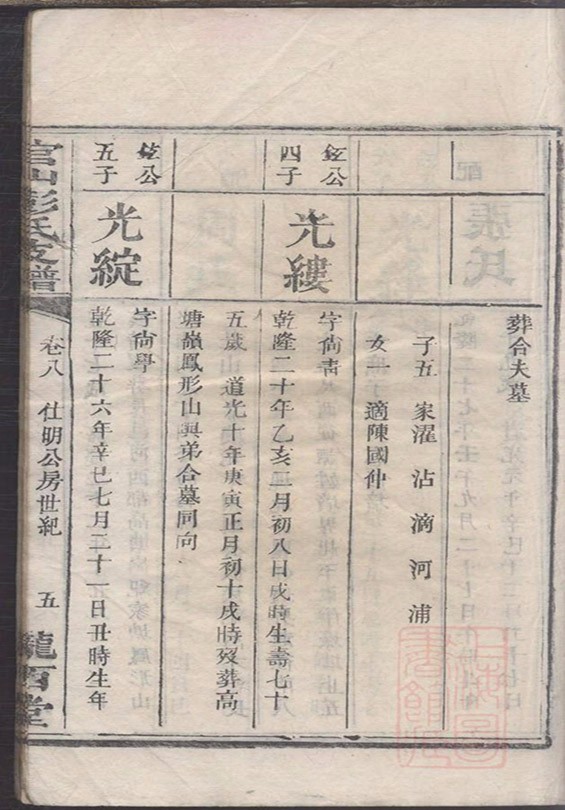 葬合夫墓
子五 家濯 沾 滴 河 浦
女一 適陳國仲
鉉公四子
光縷
字尙書
乾隆二十年乙亥二月初八日戌時生壽七十
五歲 道光十年庚寅正月初十戌時歿葬高
塘嶺鳳形山與弟合墓同向
鉉公五子
光綻
字尙學
乾隆二十六年辛巳七月二十一日丑時生年
官山彭氏支譜
卷八 仕明公房世紀
五
隴西堂